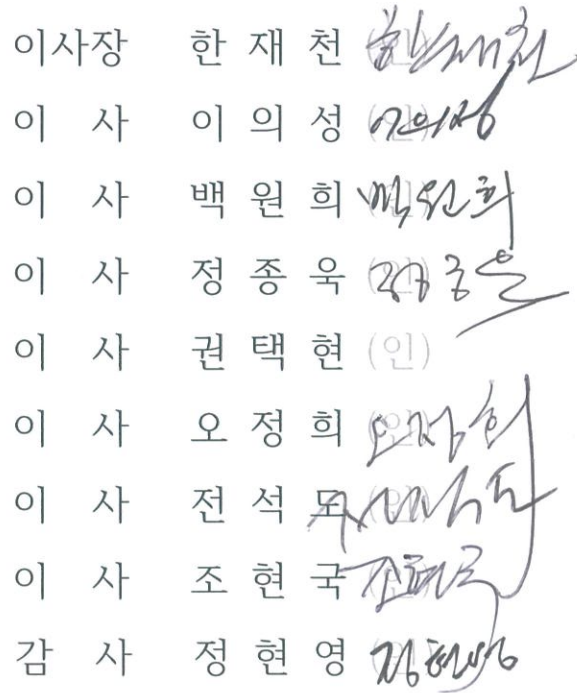 이사장 한 재 천 (인) 한재천
이 사 이 의 성 (인) 이의성
이 사 백 원 희 (인) 백원희
이 사 정 종 욱 (인) 정종욱
이 사 권 택 현 (인)
이 사 오 정 희 (인) 오정희
이 사 전 석 도 (인) 전석도
이 사 조 현 국 (인) 조현국
감 사 정 현 영 (인) 정현영